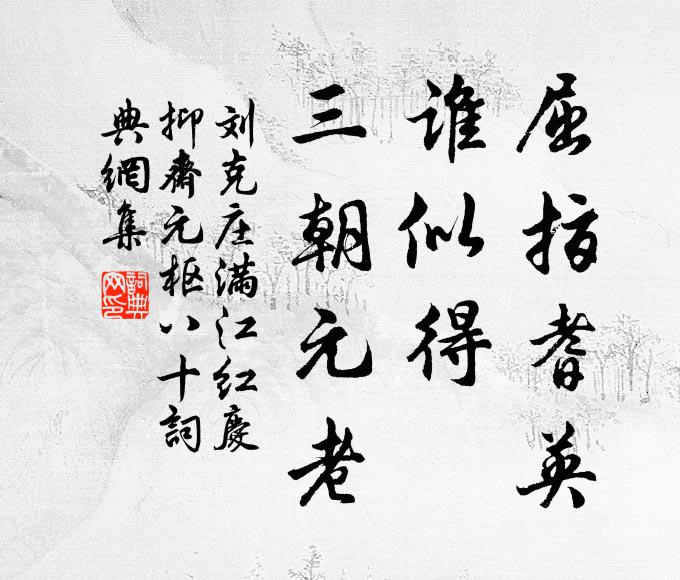 屈指耆英
谁似得
三朝元老
刘克庄满江红慶
抑齋元枢八十詞
典網集
詞典網印